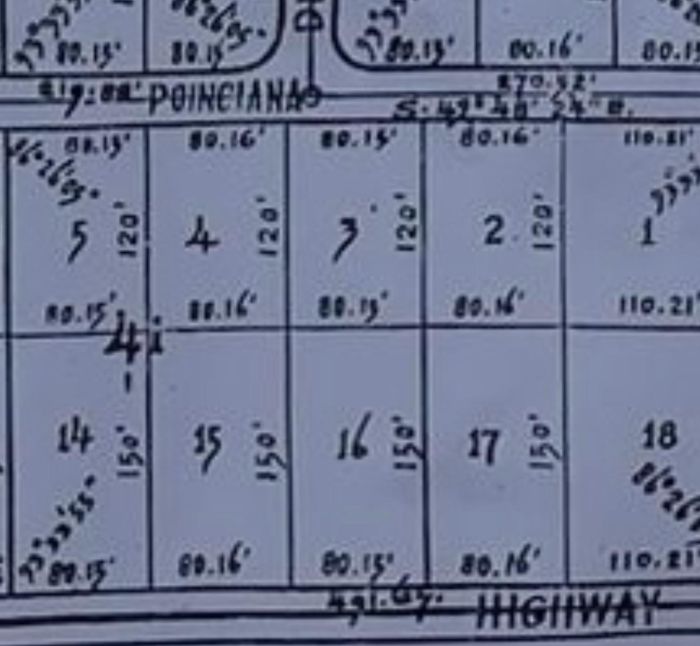 80.15' 80.15' 80.15' 80.16' 80.15
POINCIANA 270.52'
S. 49° 48' 24" E.
80.15' 80.16' 80.15' 80.16' 110.21'
86° 26' 05"
5 120' 4 120' 3 120' 2 120' 1
80.15' 80.16' 80.15' 80.16' 110.21'
14 150' 15 150' 16 150' 17 150' 18
80.15' 80.16' 80.15' 80.16' 110.21'
HIGHWAY